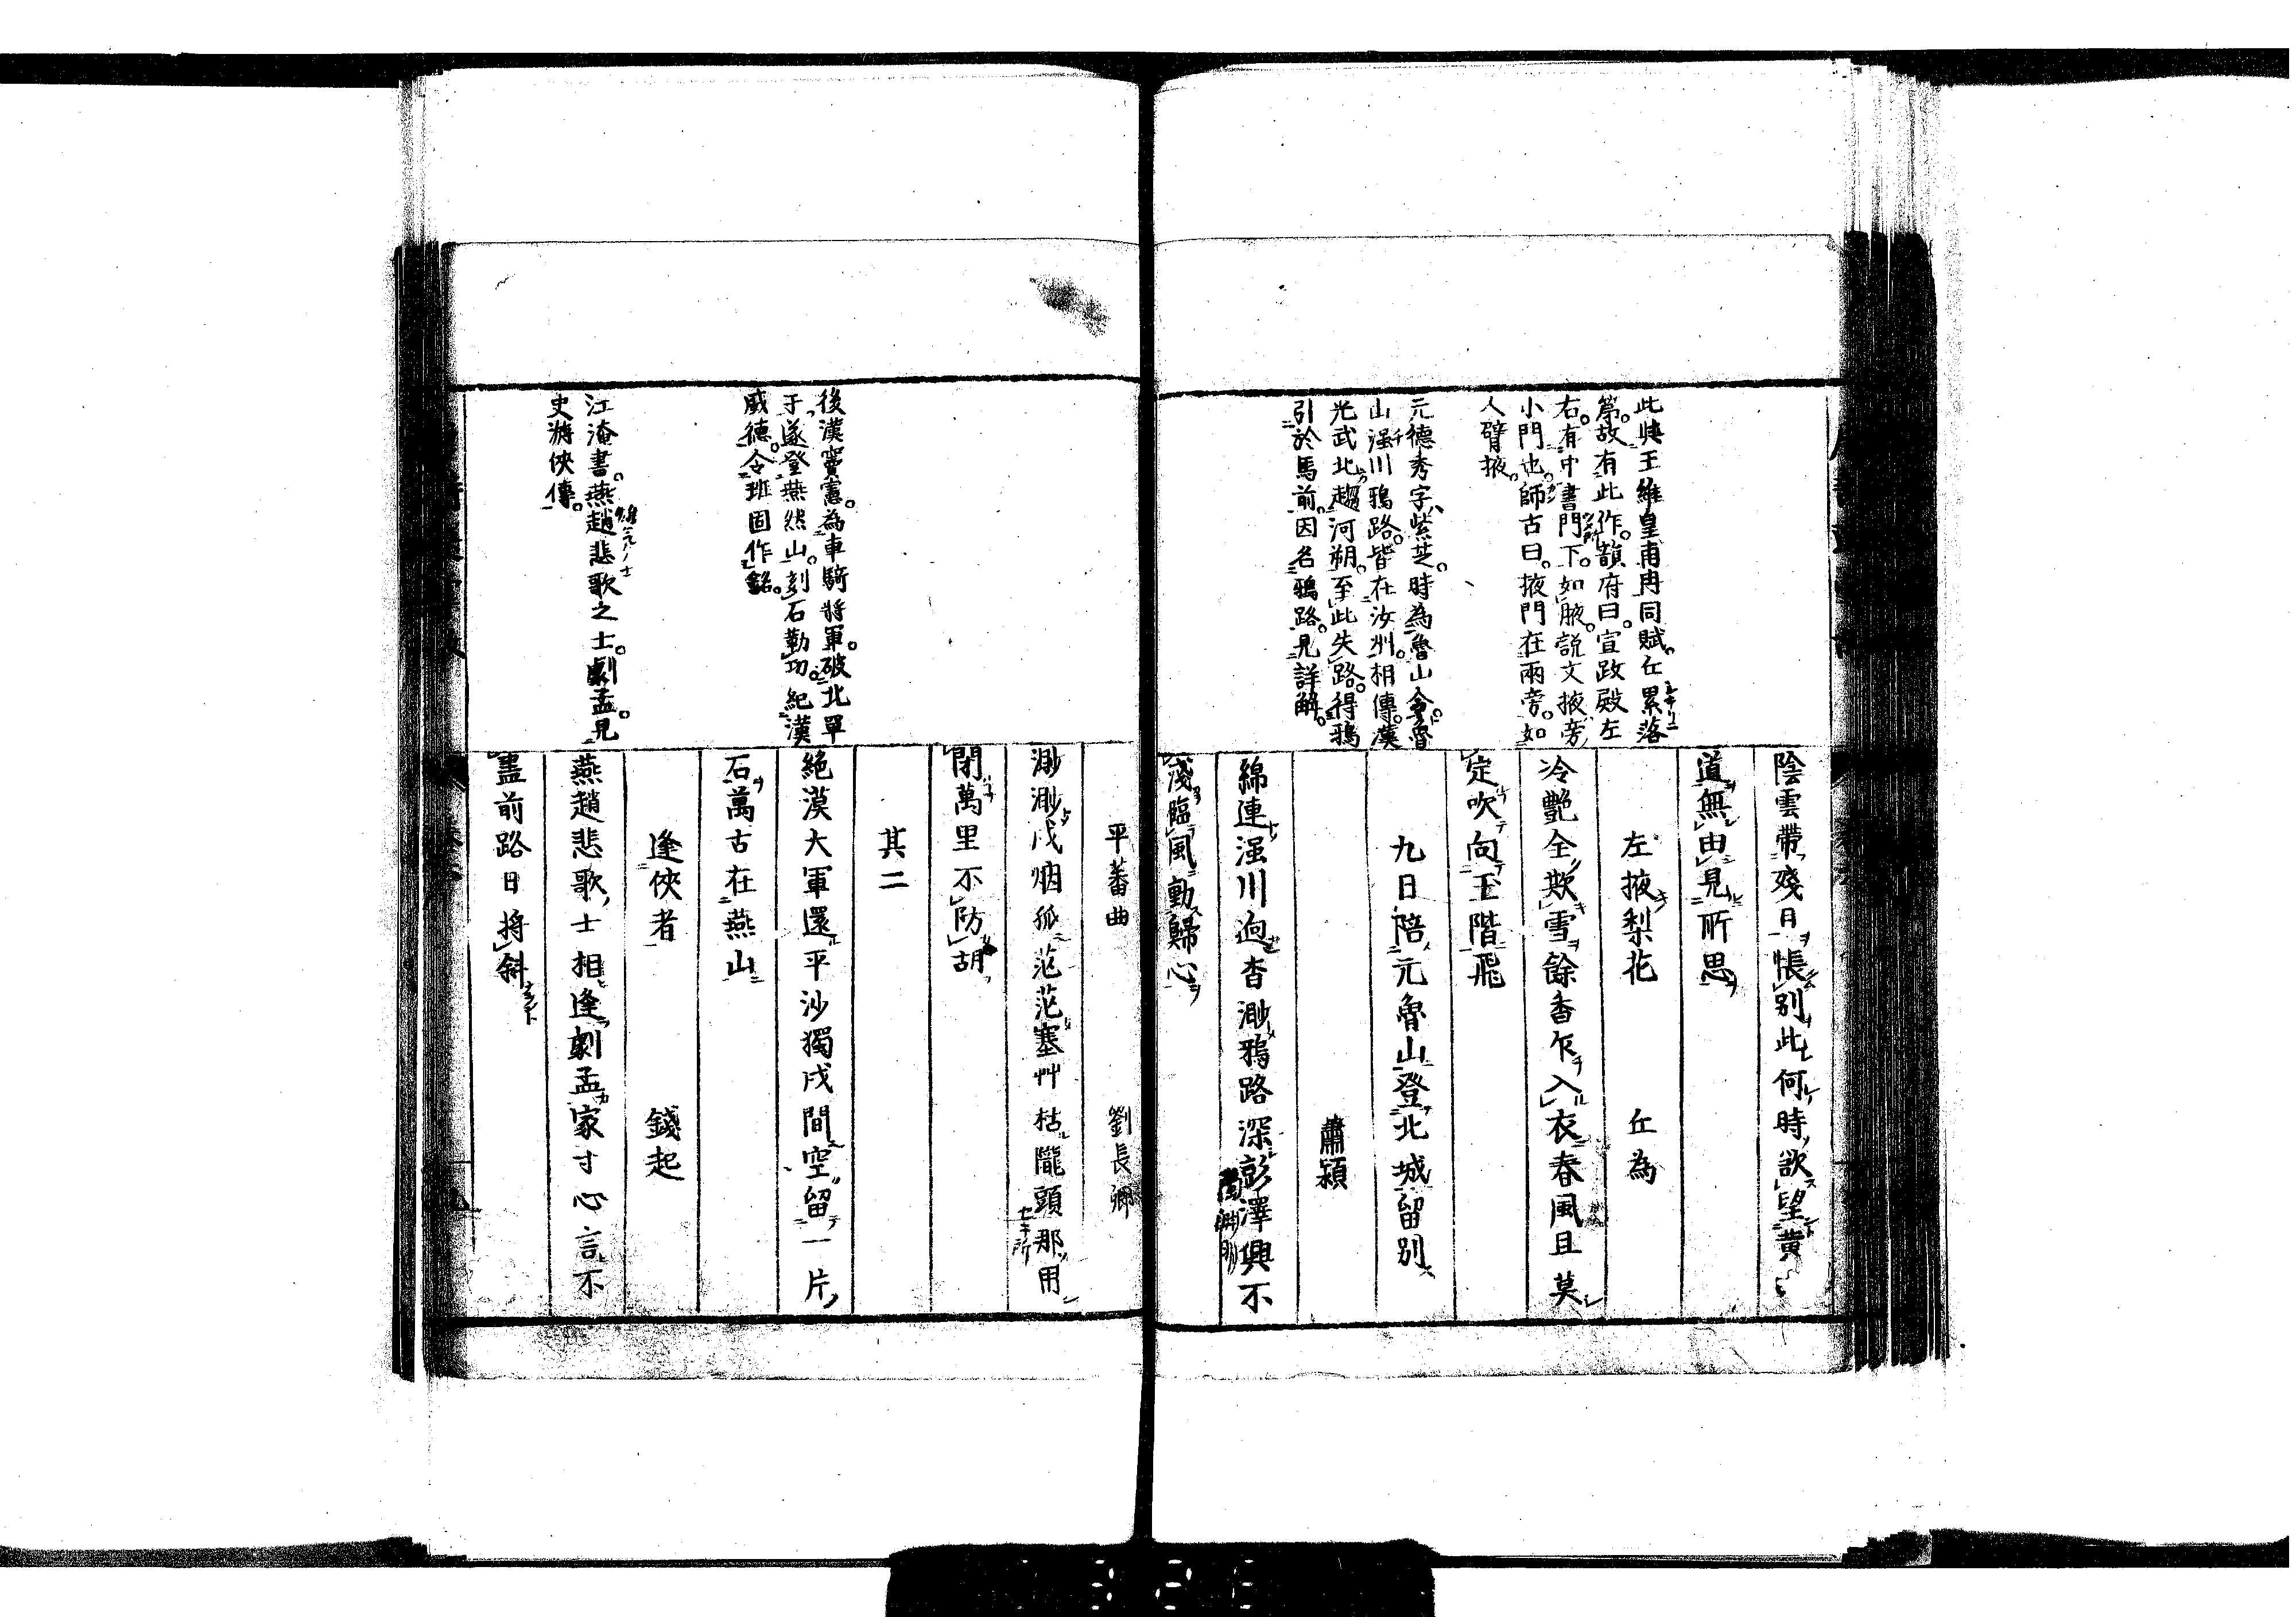 此與王維皇甫冉同賦。丘累落
第。故有此作。韻府曰。宣政殿左
右。有中書門下。如腋。説文掖旁
小門也。師古曰。掖門在兩旁。如
人臂掖。
元德秀字紫芝。時為魯山令。魯
山滍川鴉路。皆在汝州。相傳。漢
光武北趨河朔。至此失路。得鴉
引於馬前。因名鴉路。見詳解。
陰雲帶殘日悵別此何時欲望黃
道無由見所思
左掖梨花　丘為
冷艷全欺雪餘香乍入衣春風且莫
定吹向玉階飛
九日陪元魯山登北城留別
蕭穎
綿連滍川迥杳渺鴉路深彭澤興不
淺臨風動歸心
後漢竇憲。為車騎將軍。破北單
于。遂登燕然山。刻石勒功。紀漢
威德。令班固作銘。
江淹書。燕趙悲歌之士。劇孟見
史游俠傳。
平蕃曲　劉長卿
渺渺戍烟孤茫茫塞艸枯隴頭那用
閉萬里不防胡
其二
絕漠大軍還平沙獨戍間空留一片
石萬古在燕山
逢俠者　錢起
燕趙悲歌士相逢劇孟家寸心言不
盡前路日將斜